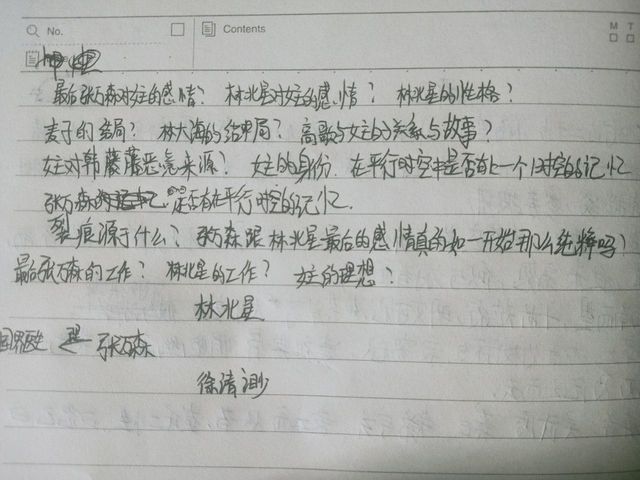 No.
Contents
M T
最后张万森对女主的感情？ 林北星对女主的感情？ 林北星的性格？
麦子的结局？ 林大海的结局？ 高歌与女主的关系与故事？
女主对韩藤藤恶意来源？ 女主的身份，在平行时空中是否有上一个时空的记忆
张万森 是否有在平行时空的记忆．
裂痕源于什么？ 张万森跟林北星最后的感情真的如一开始那么纯粹吗？
最后张万森的工作？ 林北星的工作？ 女主的理想？
林北星
张万森
徐清